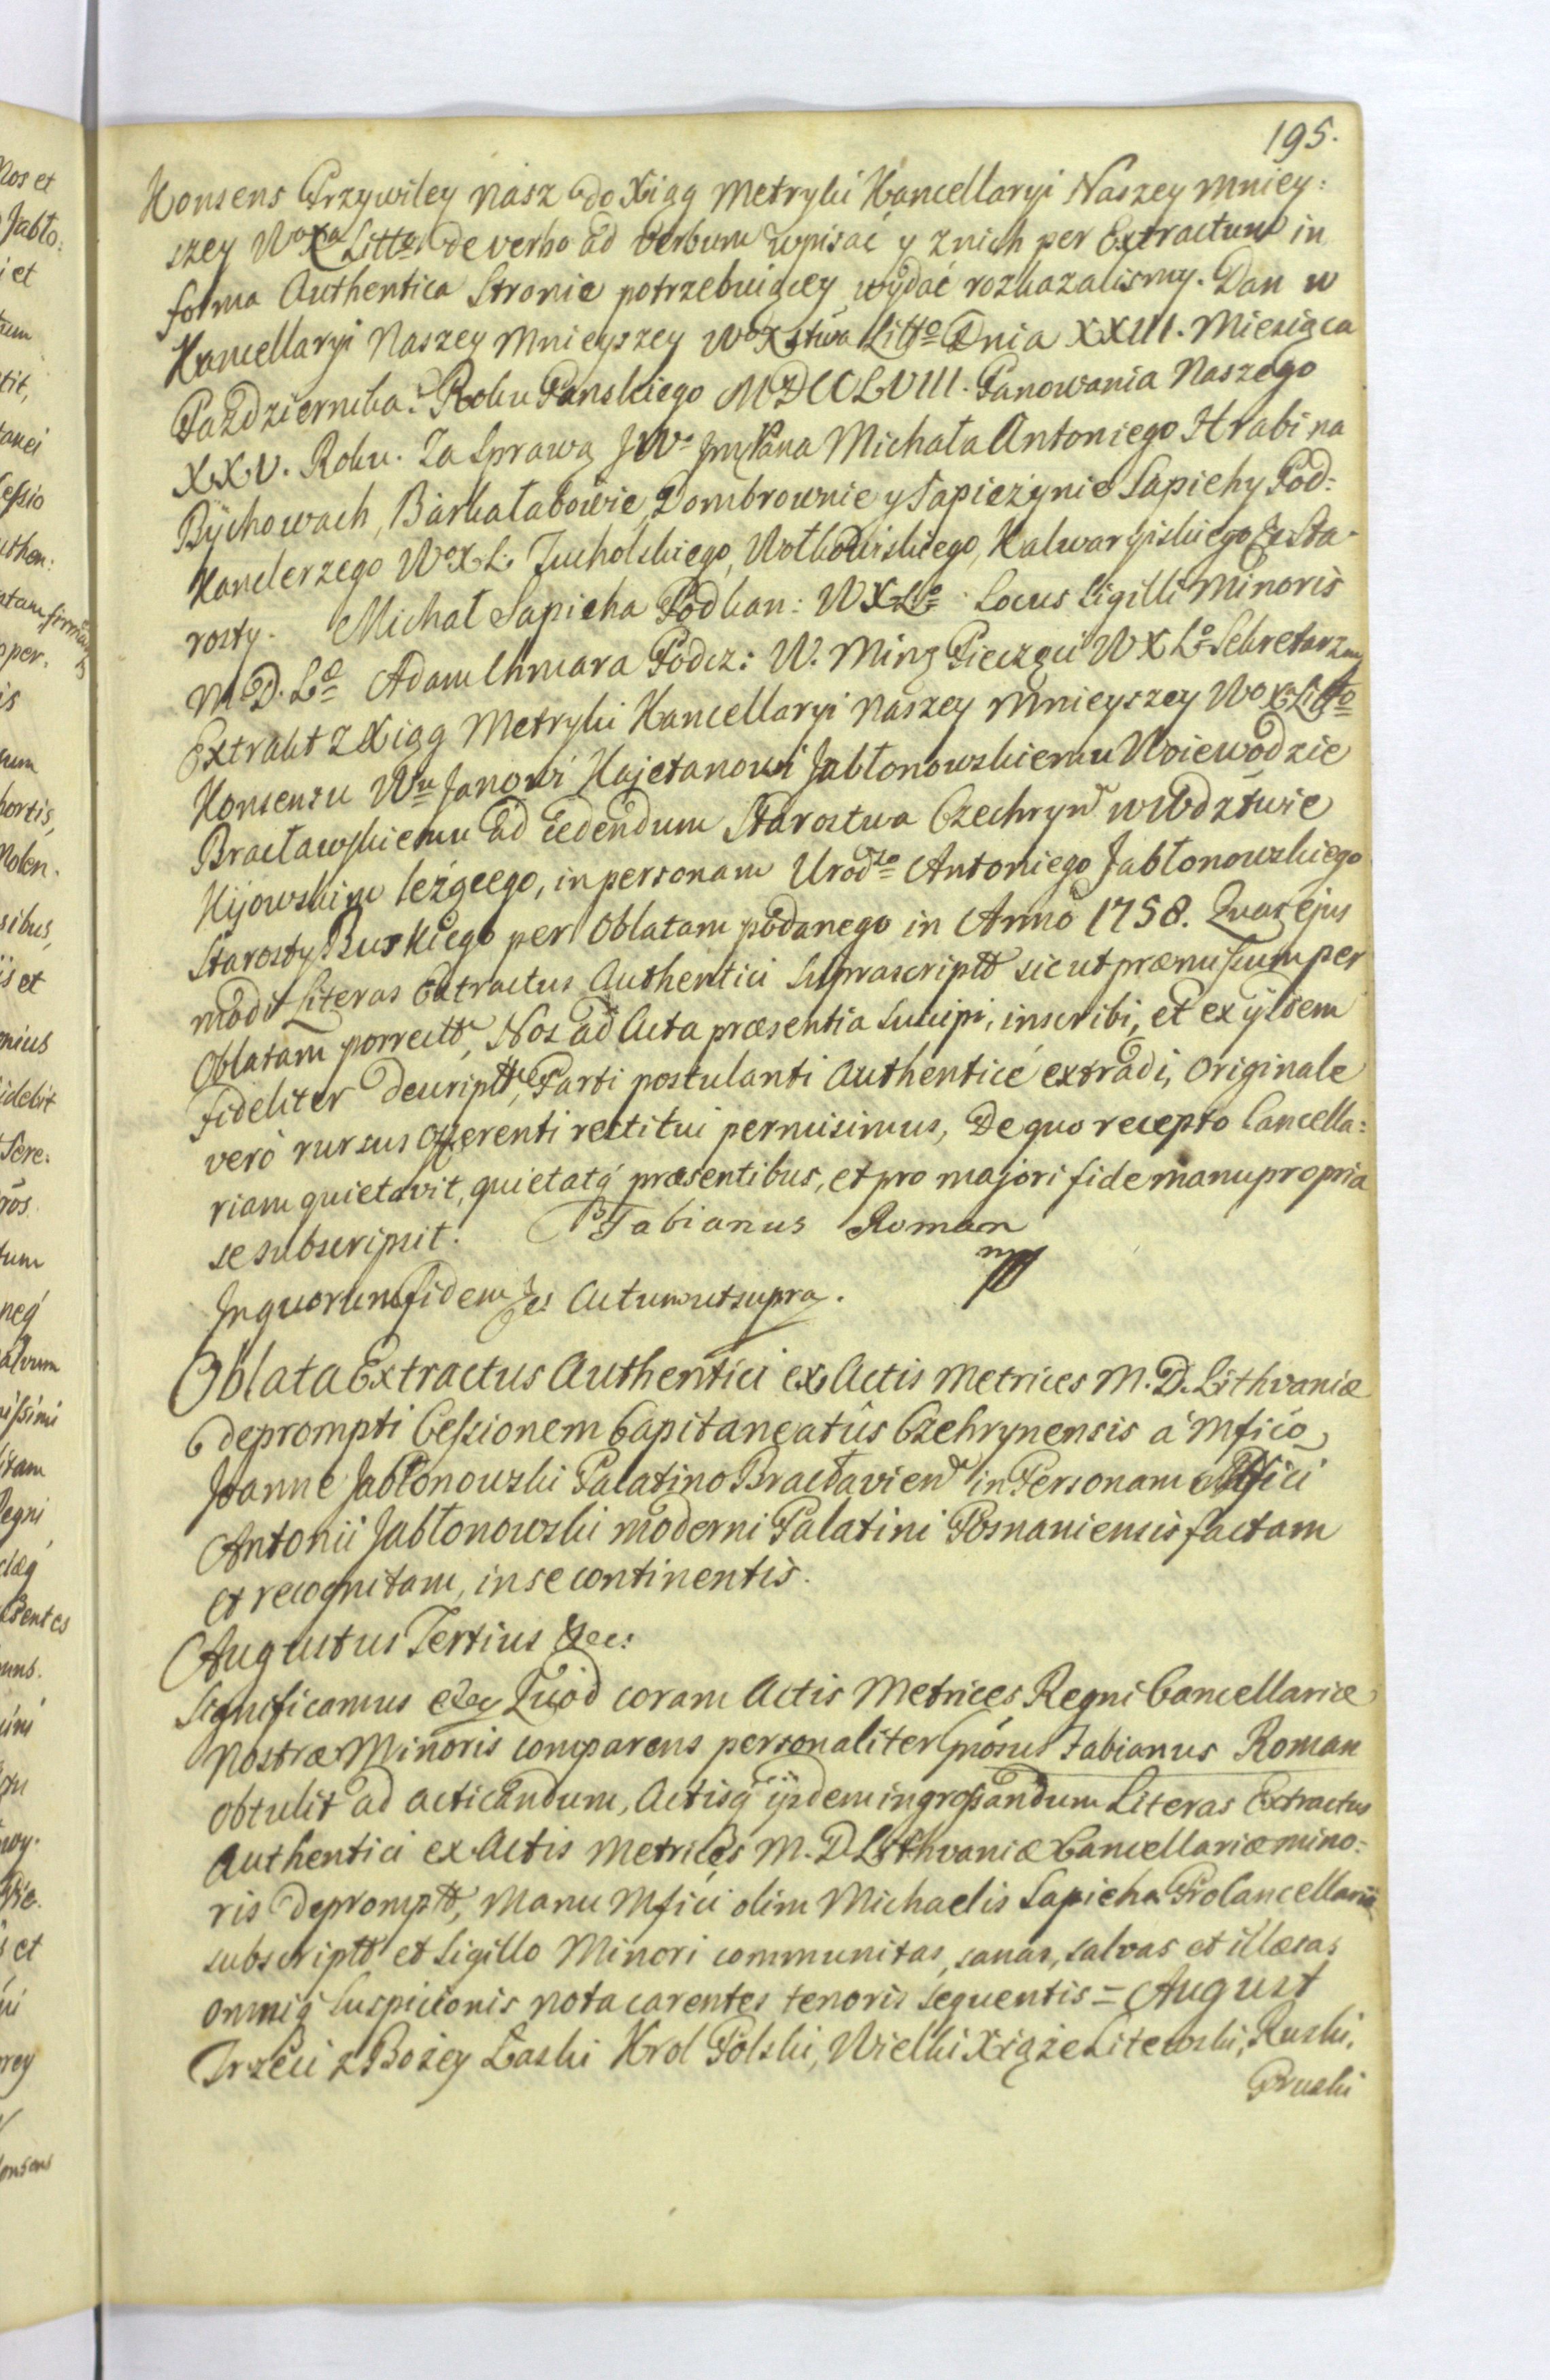 195.
Konsens Przywiley nasz do Xiąg Metryki Kancellaryi Naszey Mniey:
szey WoXa Litto de verbo ad verbum wpisać y z nich per Extractum in
forma Authentica Stronie potrzebuiącey wydać rozkazalismy. Dan w
Kancellaryi Naszey Mnieyszey WoXstwa Litto Dnia XXIII. Miesiąca
Pazdziernika. Roku Panskiego MDCCLVIII. Panowania Naszego
XXV. Roku. Za Sprawą JWo JmPana Michała Antoniego Hrabi na
Bychowach, Barkałabowie, Dombrownie y Sapieżynie Sapiehy Pod=
Kanclerzego WoXL. Tucholskiego, Wołkowiskiego, Kalwaryiskiego Sta-
rosty. Michał Sapieha Podkan: WXLo Locus Sigilli Minoris
M.D.Lo Adam Chmara Podcz: W. Ming Pieczęci WXLo Sekretarz
Extrakt z Xiąg Metryki Kancellaryi naszey Mnieyszey WoXLitto
Konsensu Wu Janowi Kajetanowi Jabłonowskiemu Woiewodzie
Bracławskiemu ad cedendum Starostwa Czechryn wWdztwie
Kijowskim leżącego, in personam Urodzo Antoniego Jabłonowskiego
Starosty Buskiego per Oblatam podanego in Anno 1758. Quas ejus
modi Literas Extractus Authentici Suprascriptt sic ut præmissum per
Oblatam porrectt, Nos ad Acta præsentia suscipi, inscribi, et ex ijsdem
fideliter descriptt, Parti postulanti Authenticé extradi, Originale
veró rursus Offerenti restitui permisimus, De quo recepto Cancella:
riam quietavit, quietatq præsentibus, et pro majori fide manu propria
se subscripsit. Fabianus Roman
mpp
In quorum fidem &c: Actum ut supra.
Oblata Extractus Authentici ex Actis Metrices M.D. Lithvaniæ
deprompti Cessionem Capitaneatûs Czehrynensis à Mfico
Joanne Jabłonowski Palatino Bracłavien in Personam Mfici
Antonii Jabłonowski moderni Palatini Posnaniensis factam
et recognitam, in se continentis.
Augustus Tertius &c:
Significamus &c Quod coram Actis Metrices Regni Cancellariæ
Nostræ Minoris comparens personaliter Gnosus Fabianus Roman
obtulit ad acticandum, Actisq ijsdem ingrossandum Literas Extractus
Authentici ex Actis Metrices M.D. Lithvaniæ Cancellariæ mino=
ris depromptt, Manu Mfici olim Michaelis Sapieha Procancellarii
subscriptt et Sigillo Minori communitas, sanas, salvas et illæsas
omniq Suspicionis nota carentes tenoris sequentis = August
Trzeci z Bożey Łaski Krol Polski, Wielki Xiąże Litewski, Ruski,
Pruski